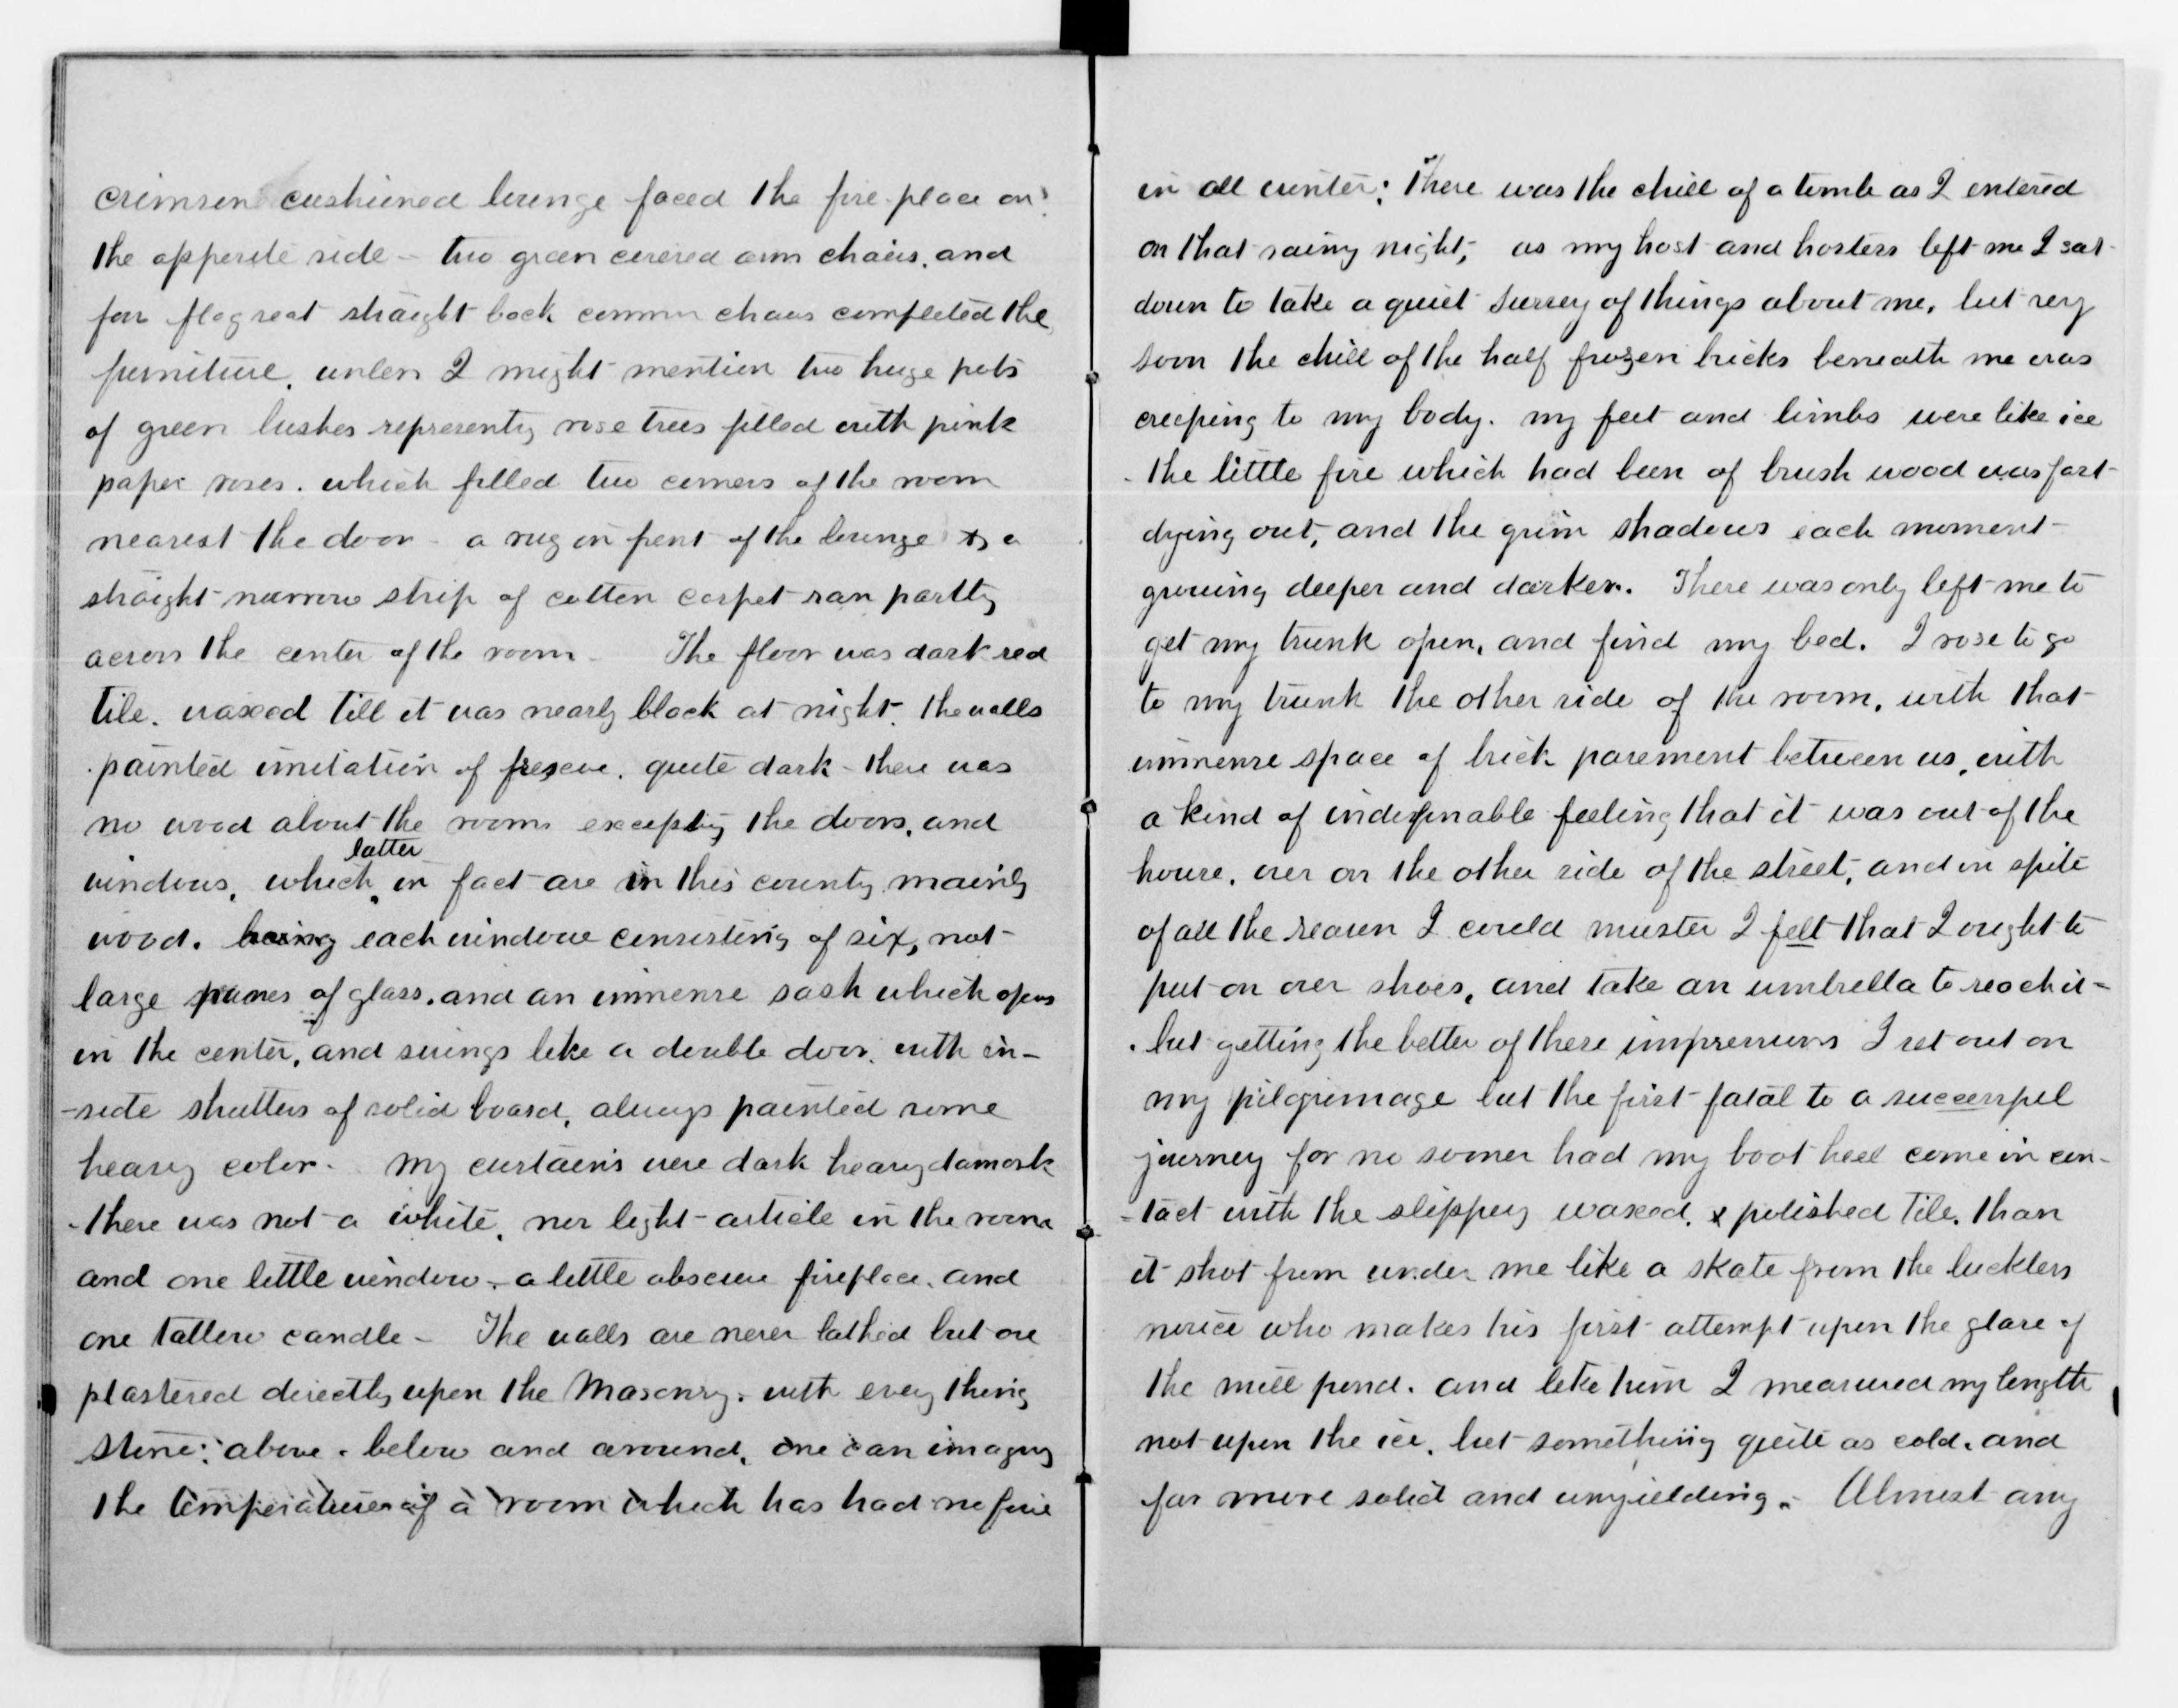 crimson cushioned lounge faced the fire-place on
the opposite side - two green covered arm chairs, and
four flag seat straight back common chairs completed the
furniture, unless I might mention two huge pots
of green bushes representing rose trees filled with pink
paper roses. which filled two corners of the room
nearest the door - a rug in front of the lounge & a
straight narrow strip of cotten carpet ran partly
across the center of the room - The floor was dark red
tile. waxed till it was nearly black at night. the walls
painted imitation of fresco. quite dark - there was
no wood about the rooms excepting the doors, and
windows, which latter in fact are in this country mainly
wood. being each window consisting of six, not
large panes of glass. and an immense sash which opens
in the center, and swings like a double door. with in-
-side shutters of solid board, always painted some
heavy color. My curtains were dark heavy damask
- there was not a white, nor light article in the room
and one little window - a little obscure fireplace. and
one tallow candle - The walls are never lathed but are
plastered directly upon the Masonry. with every thing
stone: above. below and around, one can imagine
the temperature of a room which has had no fire
in all winter; There was the chill of a tomb as I entered
on that rainy night, as my host and hostess left me I sat
down to take a quiet survey of things about me, but very
soon the chill of the half frozen bricks beneath me was
creeping to my body. my feet and limbs were like ice
- the little fire which had been of brush wood was fast
dying out, and the grim shadows each moment
growing deeper and darker. There was only left me to
get my trunk open, and find my bed. I rose to go
to my trunk the other side of the room, with that
immense space of brick pavement between us, with
a kind of indefinable feeling that it was out of the
house. over on the other side of the street, and in spite
of all the reason I could muster I felt that I ought to
put on over shoes, and take an umbrella to reach it -
. but getting the better of these impressions I set out on
my pilgrimage but the first fatal to a successful
journey for no sooner had my boot heel come in con-
-tact with the slippery waxed, & polished tile. than
it shot from under me like a skate from the luckless
novice who makes his first attempt upon the glare of
the mill pond. and like him I measured my length
not upon the ice, but something quite as cold. and
far more solid and unyielding. - Almost any